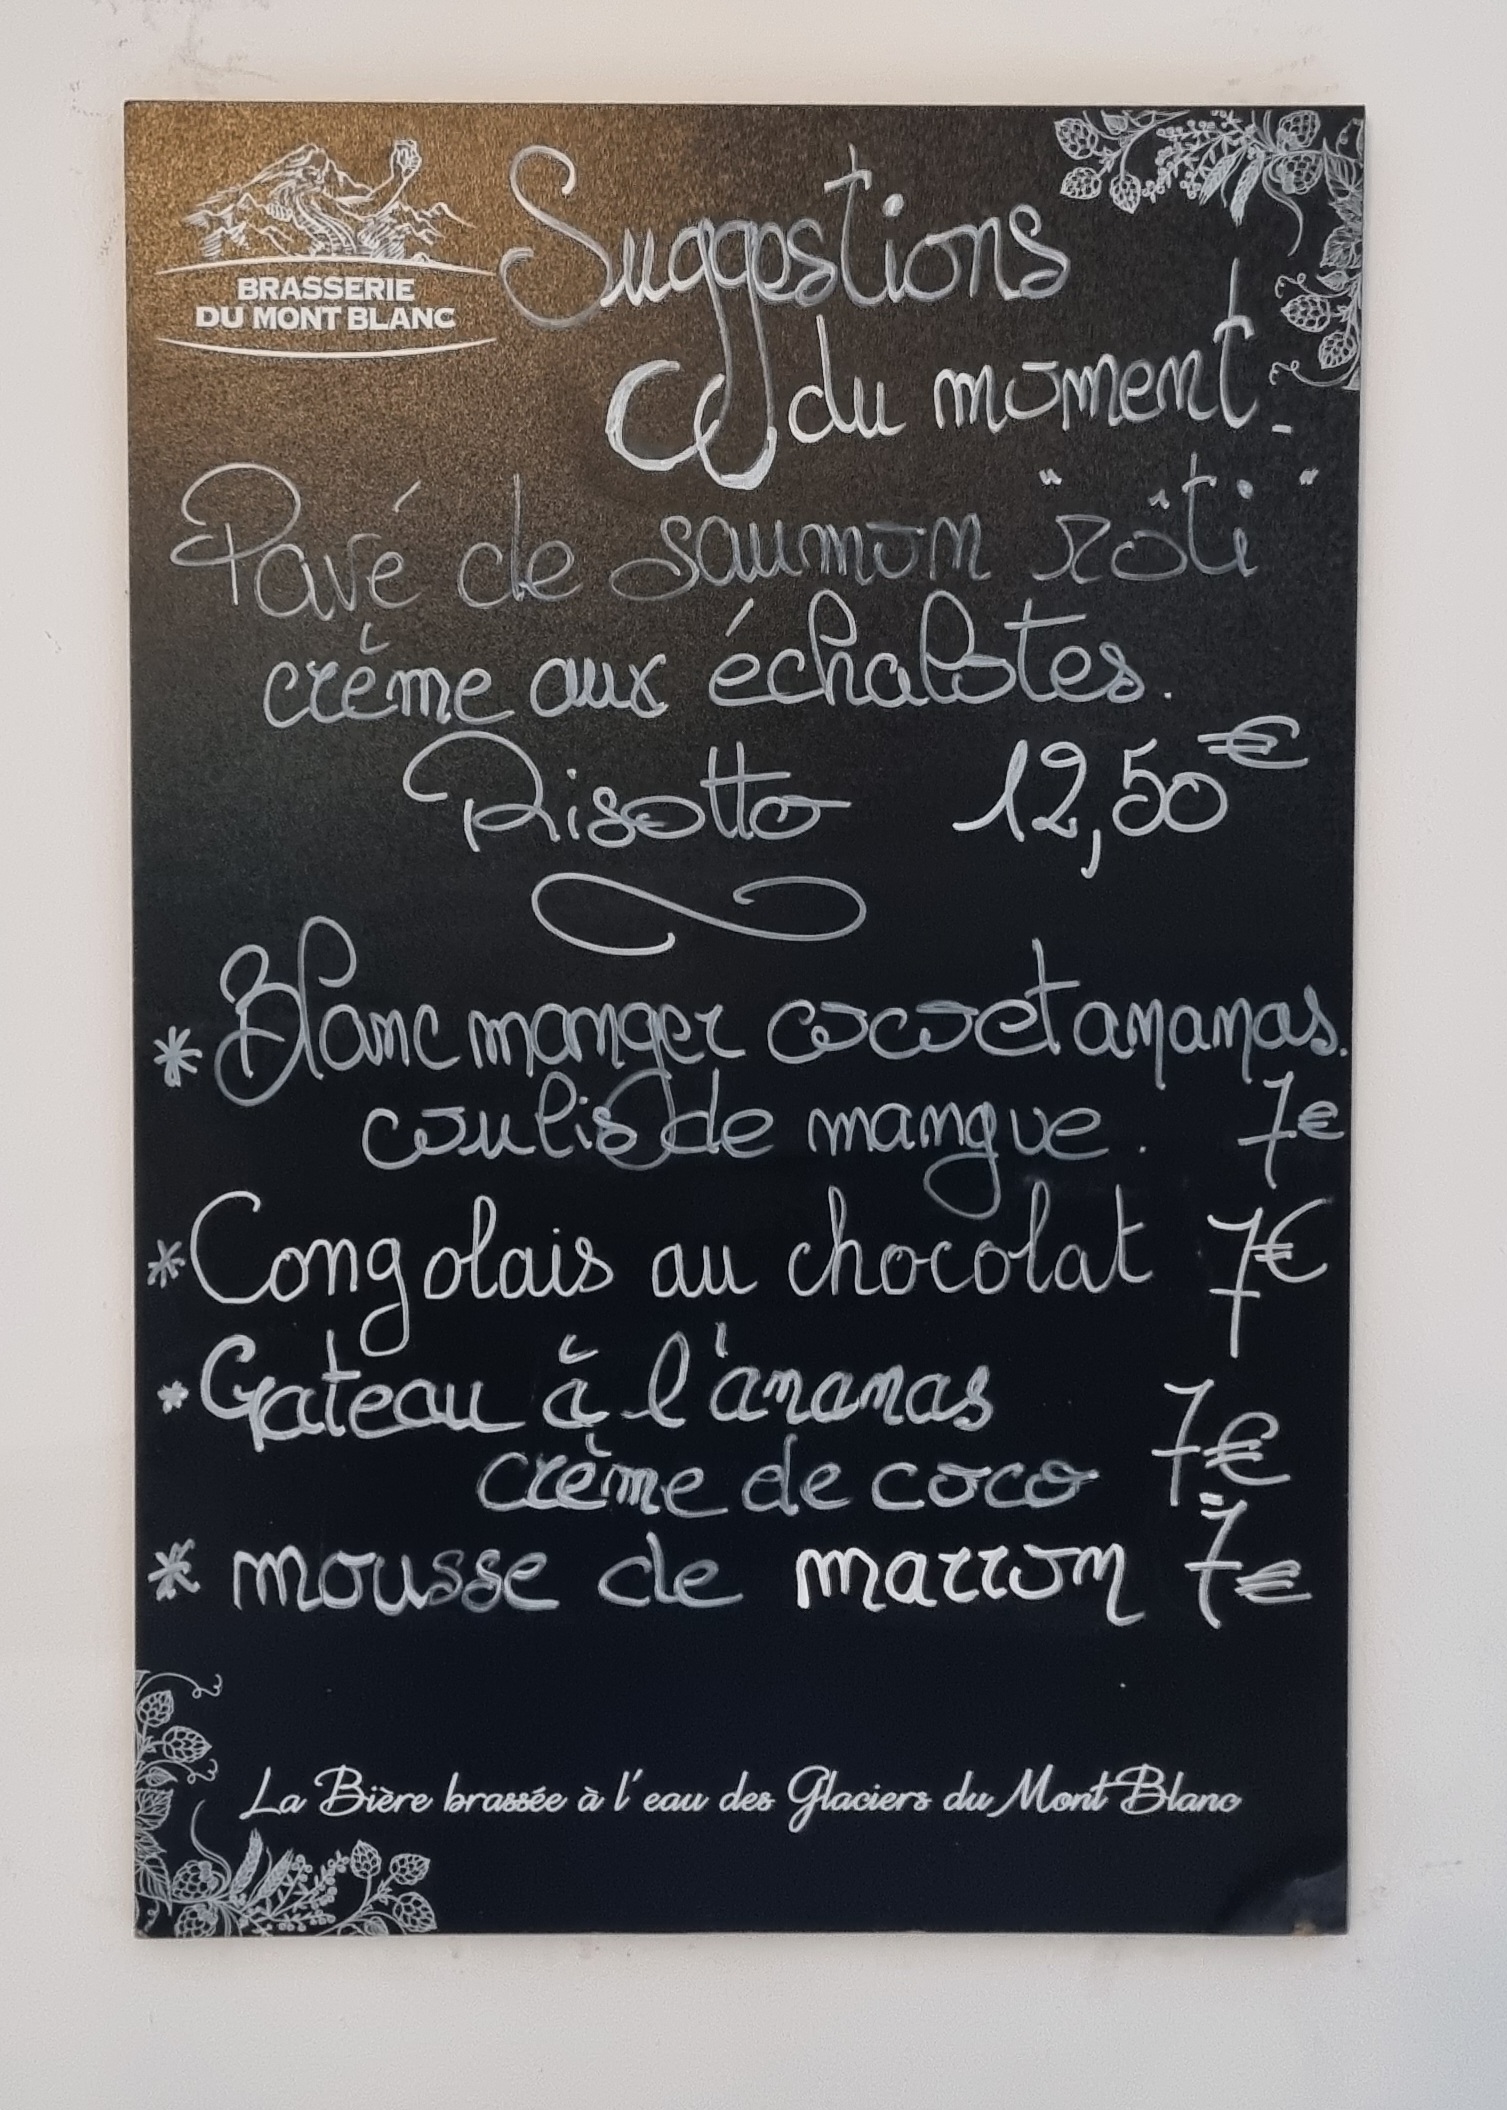 BRASSERIE
DU MONT BLANC
Suggestions
du moment.
Pavé de saumon "rôti"
crème aux échalotes.
Risotto 12,50€
* Blanc manger coco et ananas.
coulis de mangue. 7€
* Congolais au chocolat 7€
* Gateau à l'ananas
crème de coco 7€
* mousse de marron 7€
La Bière brassée à l'eau des Glaciers du Mont Blanc